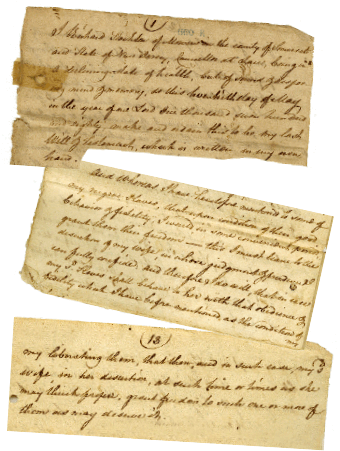 (1)
I Richard Stockton of Morven in the county of Somerset
and State of New Jersey, Counsellor at Law, being in
a declining state of health, but of sound dispos
mind & memory, do this twentieth day of May
in the year of our Lord One thousand seven hundred
and eighty make and ordain this to be my last
Will & Testament, which is written in my own
hand.
And whereas I have heretofore mentioned to some of
my negroe Slaves, that upon condition of their good
behavior & fidelity, I would in some convenient period
grant them their freedom — this I must leave to the
discretion of my wife, in whose judgment & prudence I
can fully confide, and therefore do will that in case
any Slaves shall behave to her with that obedience &
fidelity which I have before mentioned as the condition of
my
(13)
my liberating them, that then, and in such case, my sd
wife in her discretion, at such time or times as she
may think proper, grant freedom to such one or more of
them as may deserve it.